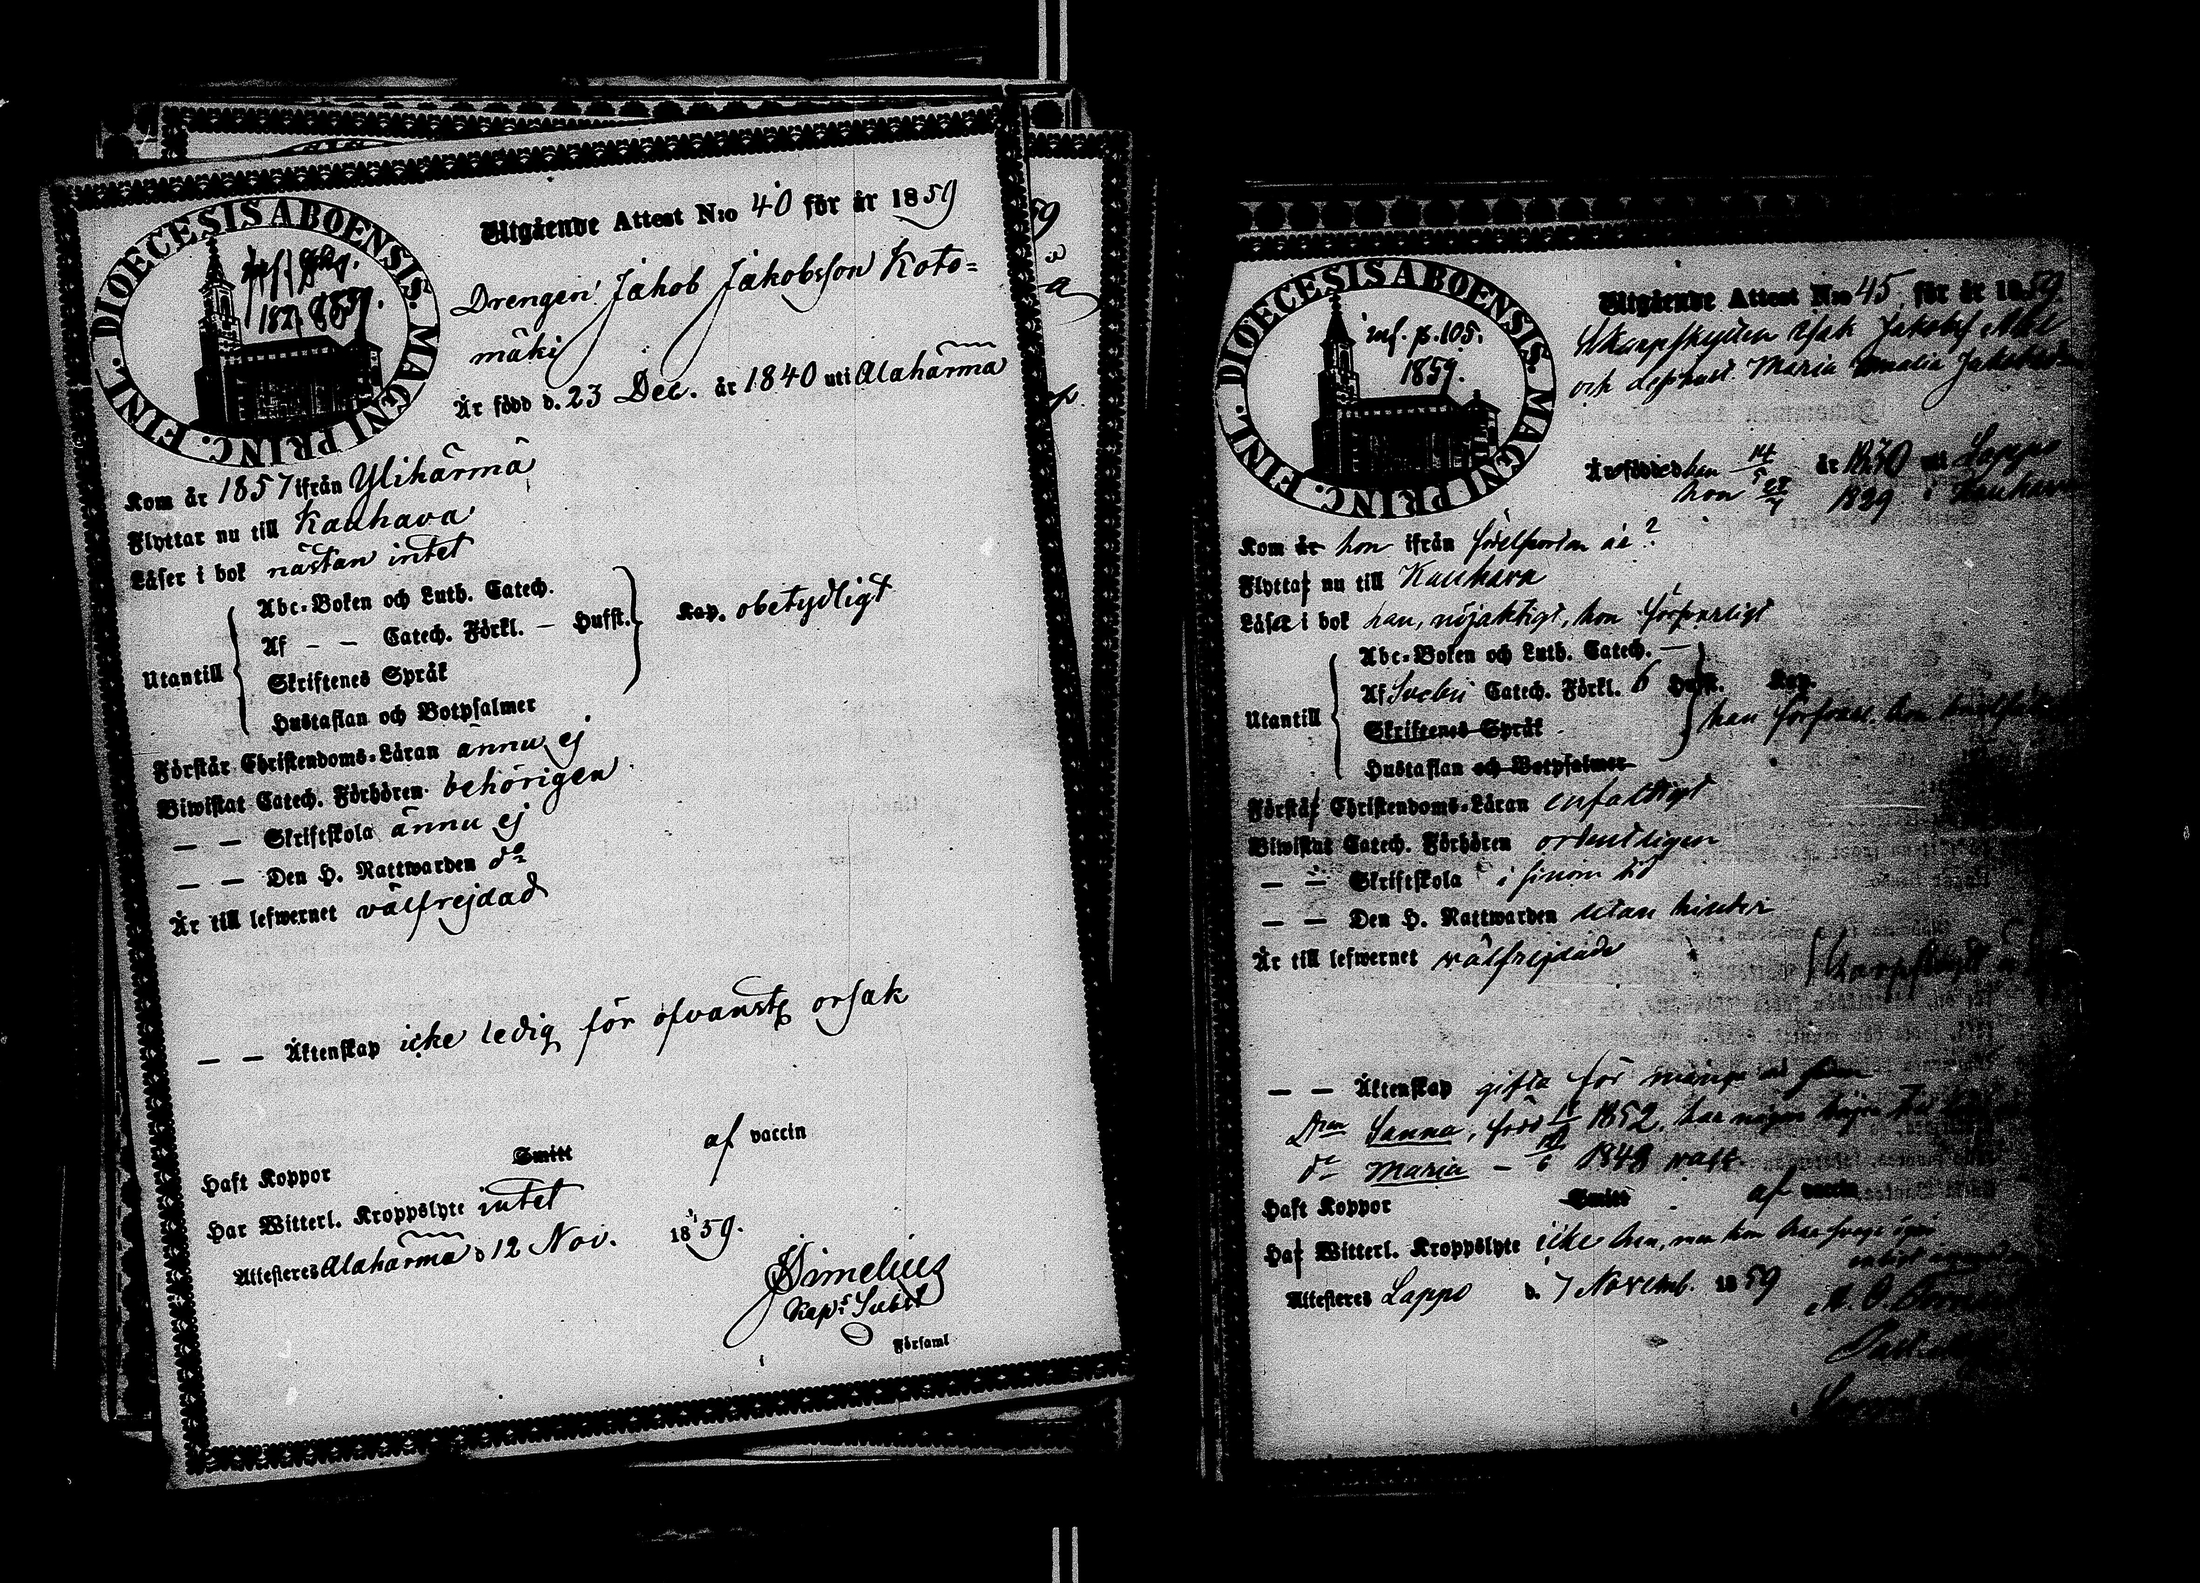 DIOECESIS ABOENSIS. MAGNI PRINC. FINL.
1859.
Utgående Attest N:o 40 för år 1859
Drengen Jakob Jakobsson Koto=
mäki
Är född d. 23 Dec. år 1840 uti Alahärmä
Kom år 1857 ifrån Ylihärmä
Flyttar nu till Kauhava
Läser i bok nästan intet
Utantill
Abc-Boken och Luth. Catech.
Af — — Catech. Förkl. — Hufst.
Skriftenes Språk
Hustaflan och Botpsalmer
Kap. obetydligt
Förstår Christendoms-Läran ännu ej
Biwistat Catech. Förhören behörigen
— — Skriftskola ännu ej
— — Den H. Nattwarden do
Är till lefwernet välfrejdad
— — Äktenskap icke ledig för ofvanst. orsak
Haft Koppor Smitt af vaccin
Har Witterl. Kroppslyte intet
Attesteras Alahärmä d 12 Nov. 1859.
Kaps Subst
Församl
DIOECESIS ABOENSIS. MAGNI PRINC. FINL.
inf. p. 105.
1859.
Utgående Attest N:o 45 för år 1859
Skarpskytten Isak Jakobss.
och dess hust. Maria Amalia
Är född han 14/5 år 1830 uti Lappo
hon 1829 i Kauhava
Kom år hon ifrån födelseorten år?
Flytta nu till Kauhava
Läser i bok han, nöjaktigt, hon försvarligt
Utantill
Abc-Boken och Luth. Catech. —
Af Svebii Catech. Förkl. 6 Hufst. Kap.
Skriftenes Språk
Hustaflan och Botpsalmer
han försvarl. hon
Förstå Christendoms-Läran enfaldigt
Biwistat Catech. Förhören ordentligen
— — Skriftskola i sinom tid
— — Den H. Nattwarden utan hinder
Är till lefwernet välfrejdade
— — Äktenskap gifta för många år sedan
Dren Sanna, född 1852, har någon
do Maria — 1848 vacc.
Haft Koppor Smitt af vaccin
Haf Witterl. Kroppslyte icke han, men hon har
Attesteras Lappo d. 7 Novemb. 1859